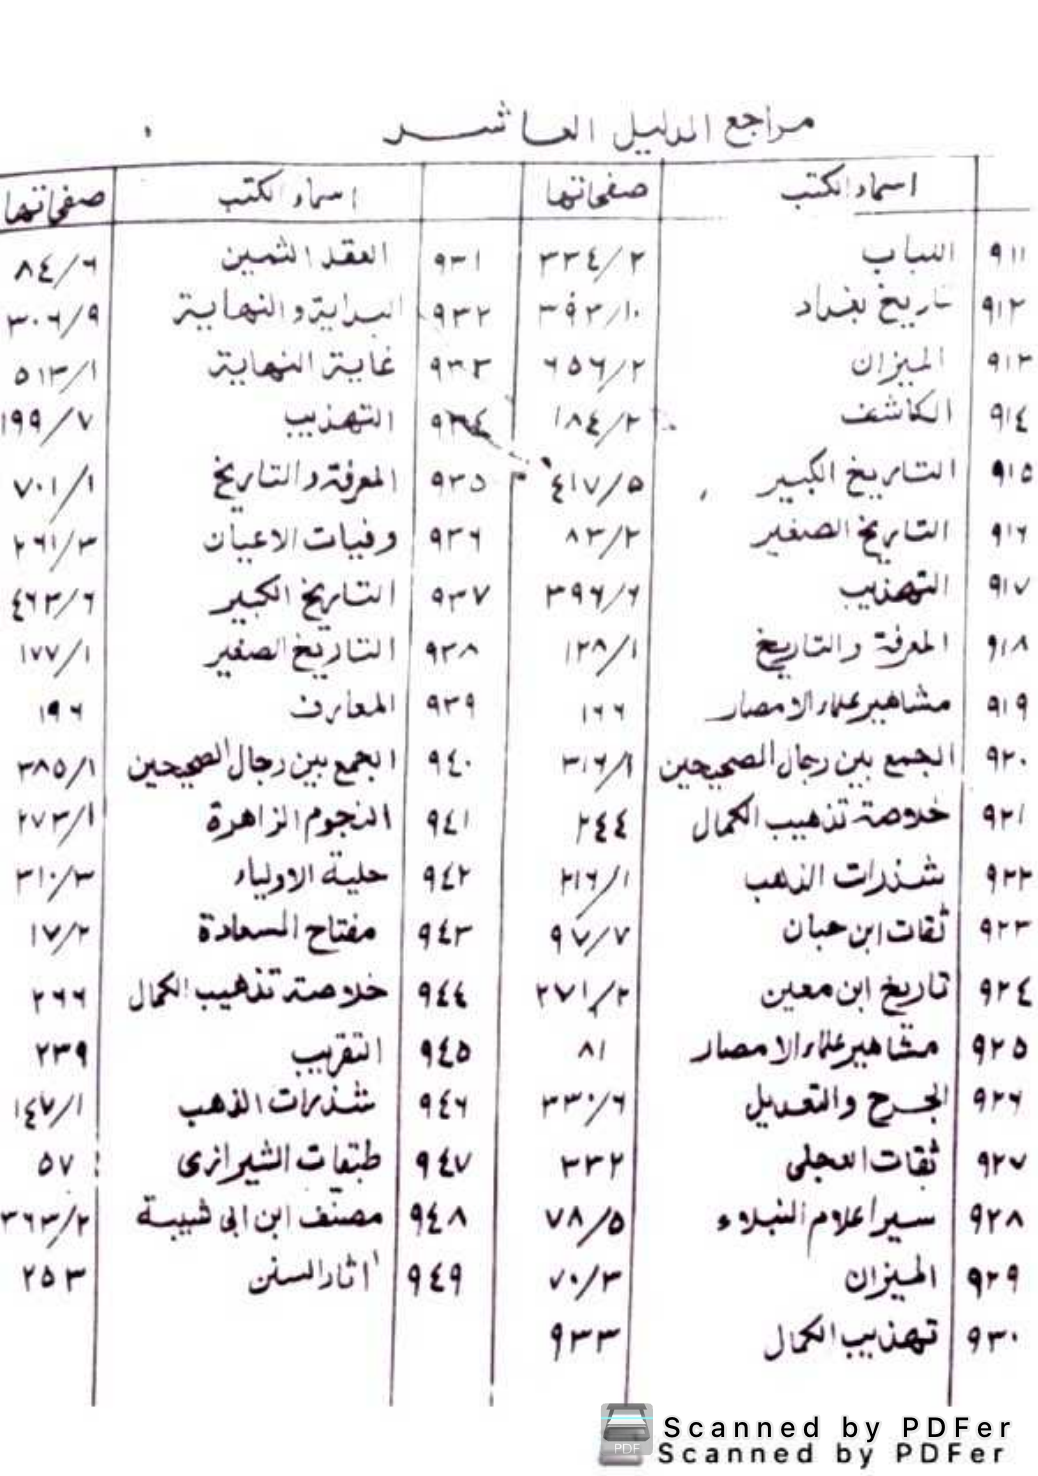 مراجع الدليل العاشر
اسماء الكتب صفحاتها اسماء الكتب صفحاتها
٩١١ اللباب ٣٣٤/٢ ٩٣١ العقد الثمين ٨٤/٦
٩١٢ تاريخ بغداد ٣٩٢/١٠ ٩٣٢ البداية والنهاية ٣٠٦/٩
٩١٣ الميزان ٦٥٦/٢ ٩٣٣ غاية النهاية ٥١٣/١
٩١٤ الكاشف ١٨٤/٢ ٩٣٤ التهذيب ١٩٩/٧
٩١٥ التاريخ الكبير ٤١٧/٥ ٩٣٥ المعرفة والتاريخ ٧٠١/١
٩١٦ التاريخ الصغير ٨٣/٢ ٩٣٦ وفيات الاعيان ٢٦١/٣
٩١٧ التهذيب ٣٩٦/٦ ٩٣٧ التاريخ الكبير ٤٦٣/٦
٩١٨ المعرفة والتاريخ ١٢٨/١ ٩٣٨ التاريخ الصغير ١٧٧/١
٩١٩ مشاهير علماء الامصار ١٦٦ ٩٣٩ المعارف ١٩٦
٩٢٠ الجمع بين رجال الصحيحين ٣١٦/١ ٩٤٠ الجمع بين رجال الصحيحين ٣٨٥/١
٩٢١ خلاصة تذهيب الكمال ٢٤٤ ٩٤١ النجوم الزاهرة ٢٧٣/١
٩٢٢ شذرات الذهب ٢١٦/١ ٩٤٢ حلية الاولياء ٣١٠/٣
٩٢٣ ثقات ابن حبان ٩٧/٧ ٩٤٣ مفتاح السعادة ١٧/٢
٩٢٤ تاريخ ابن معين ٢٧١/٢ ٩٤٤ خلاصة تذهيب الكمال ٢٦٦
٩٢٥ مشاهير علماء الامصار ٨١ ٩٤٥ التقريب ٢٣٩
٩٢٦ الجرح والتعديل ٣٣٠/٦ ٩٤٦ شذرات الذهب ١٤٧/١
٩٢٧ ثقات العجلى ٣٣٢ ٩٤٧ طبقات الشيرازى ٥٧
٩٢٨ سير اعلام النبلاء ٧٨/٥ ٩٤٨ مصنف ابن ابى شيبة ٣٦٣/٢
٩٢٩ الميزان ٧٠/٣ ٩٤٩ اثار السنن ٢٥٣
٩٣٠ تهذيب الكمال ٩٣٣
PDF
Scanned by PDFer
Scanned by PDFer